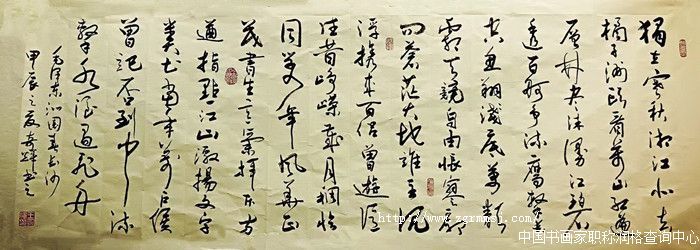 獨立寒秋湘江北去
橘子洲頭看萬山紅遍
層林盡染漫江碧
透百舸爭流鷹擊長
空魚翔淺底萬類
霜天競自由悵寥廓
問蒼茫大地誰主沉
浮攜來百侶曾遊憶
往昔崢嶸歲月稠恰
同學少年風華正
茂書生意氣揮斥方
遒指點江山激揚文字
糞土當年萬戶侯
曾記否到中流
擊水浪遏飛舟
毛澤東沁園春長沙
甲辰之夏
書之
http://www.zgrmmsj.com
中国书画家职称润格查询中心